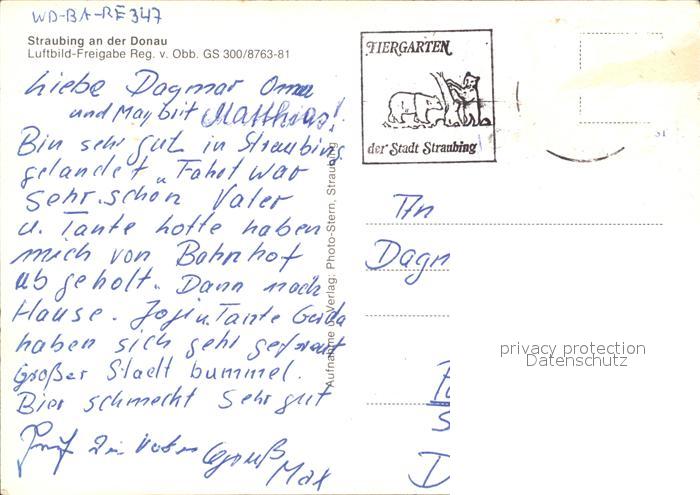 WD-BA-RE347
Straubing an der Donau
Luftbild-Freigabe Reg. v. Obb. GS 300/8763-81
Liebe Dagmar Oma
und Maybrit Matthias!
Bin sehr gut in Straubing
gelandet, Fahrt war
sehr schön Vater
u. Tante Lotte haben
mich von Bahnhof
abgeholt. Dann nach
Hause. Jogi u. Tante Gerda
haben sich sehr gefreut
Großer Stadt bummel.
Bier schmeckt sehr gut
Gruß
Max
Aufnahme u. Verlag: Photo-Stern, Straubing
TIERGARTEN
der Stadt Straubing
An
Dagm
privacy protection
Datenschutz